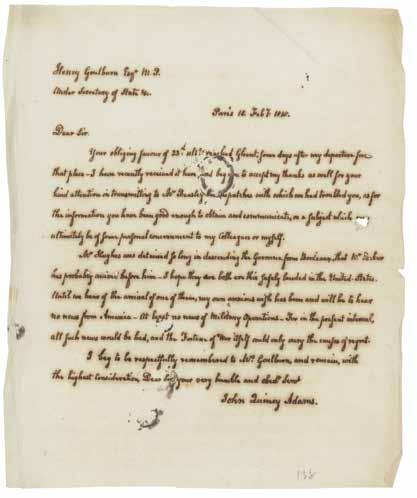 Henry Goulburn Esqr M.P.
Under Secretary of State &c.
Paris 16. Feby 1815.
Dear Sir.
Your obliging favour of 23d. ulto. reached Ghent, four days after my departure from
that place - I have recently received it here, and beg you to accept my thanks as well for your
kind attention in transmitting to Mr Beasley, the Dispatches with which we had troubled you, as for
the information you have been good enough to obtain and communicate, on a subject which may
ultimately be of some personal concernment to my Colleagues or myself.
Mr Hughes was detained so long in descending the Garonne from Bordeaux, that Mr
has probably arrived before him - I hope they are both ere this safely landed in the United States.
Until we hear of the arrival of one of them, my own anxious wish has been and will be to hear
no news from America - At least no news of Military Operations - For in the present interval,
all such news would be bad, and the Fortune of War itself could only vary the causes of regret.
I beg to be respectfully remembered to Mrs. Goulburn, and remain, with
the highest consideration, Dear Sir, your very humble and obedt. Servt
John Quincy Adams.
138